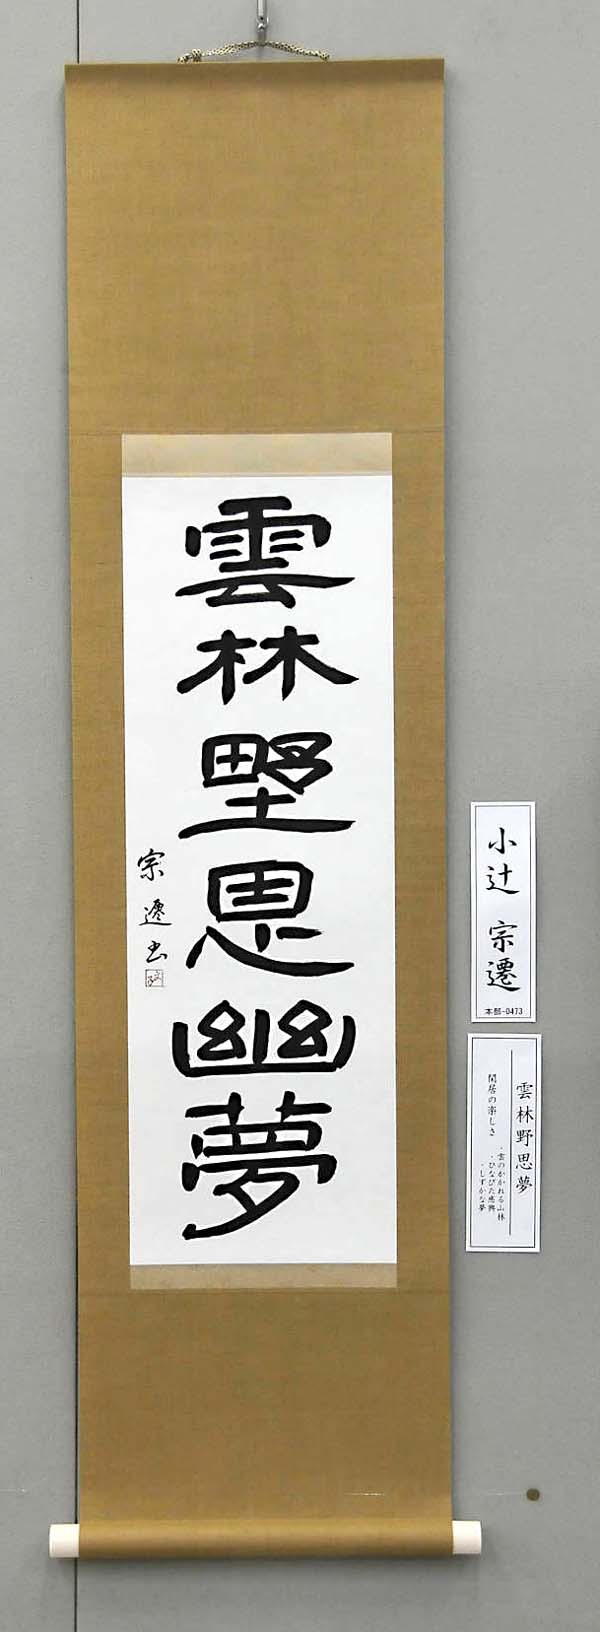 雲林野思幽夢
宗遷書
小辻 宗遷
本部-0473
雲林野思夢
閑居の楽しさ
・雲のかかれる山林
・ひなびた感興
・しずかな夢